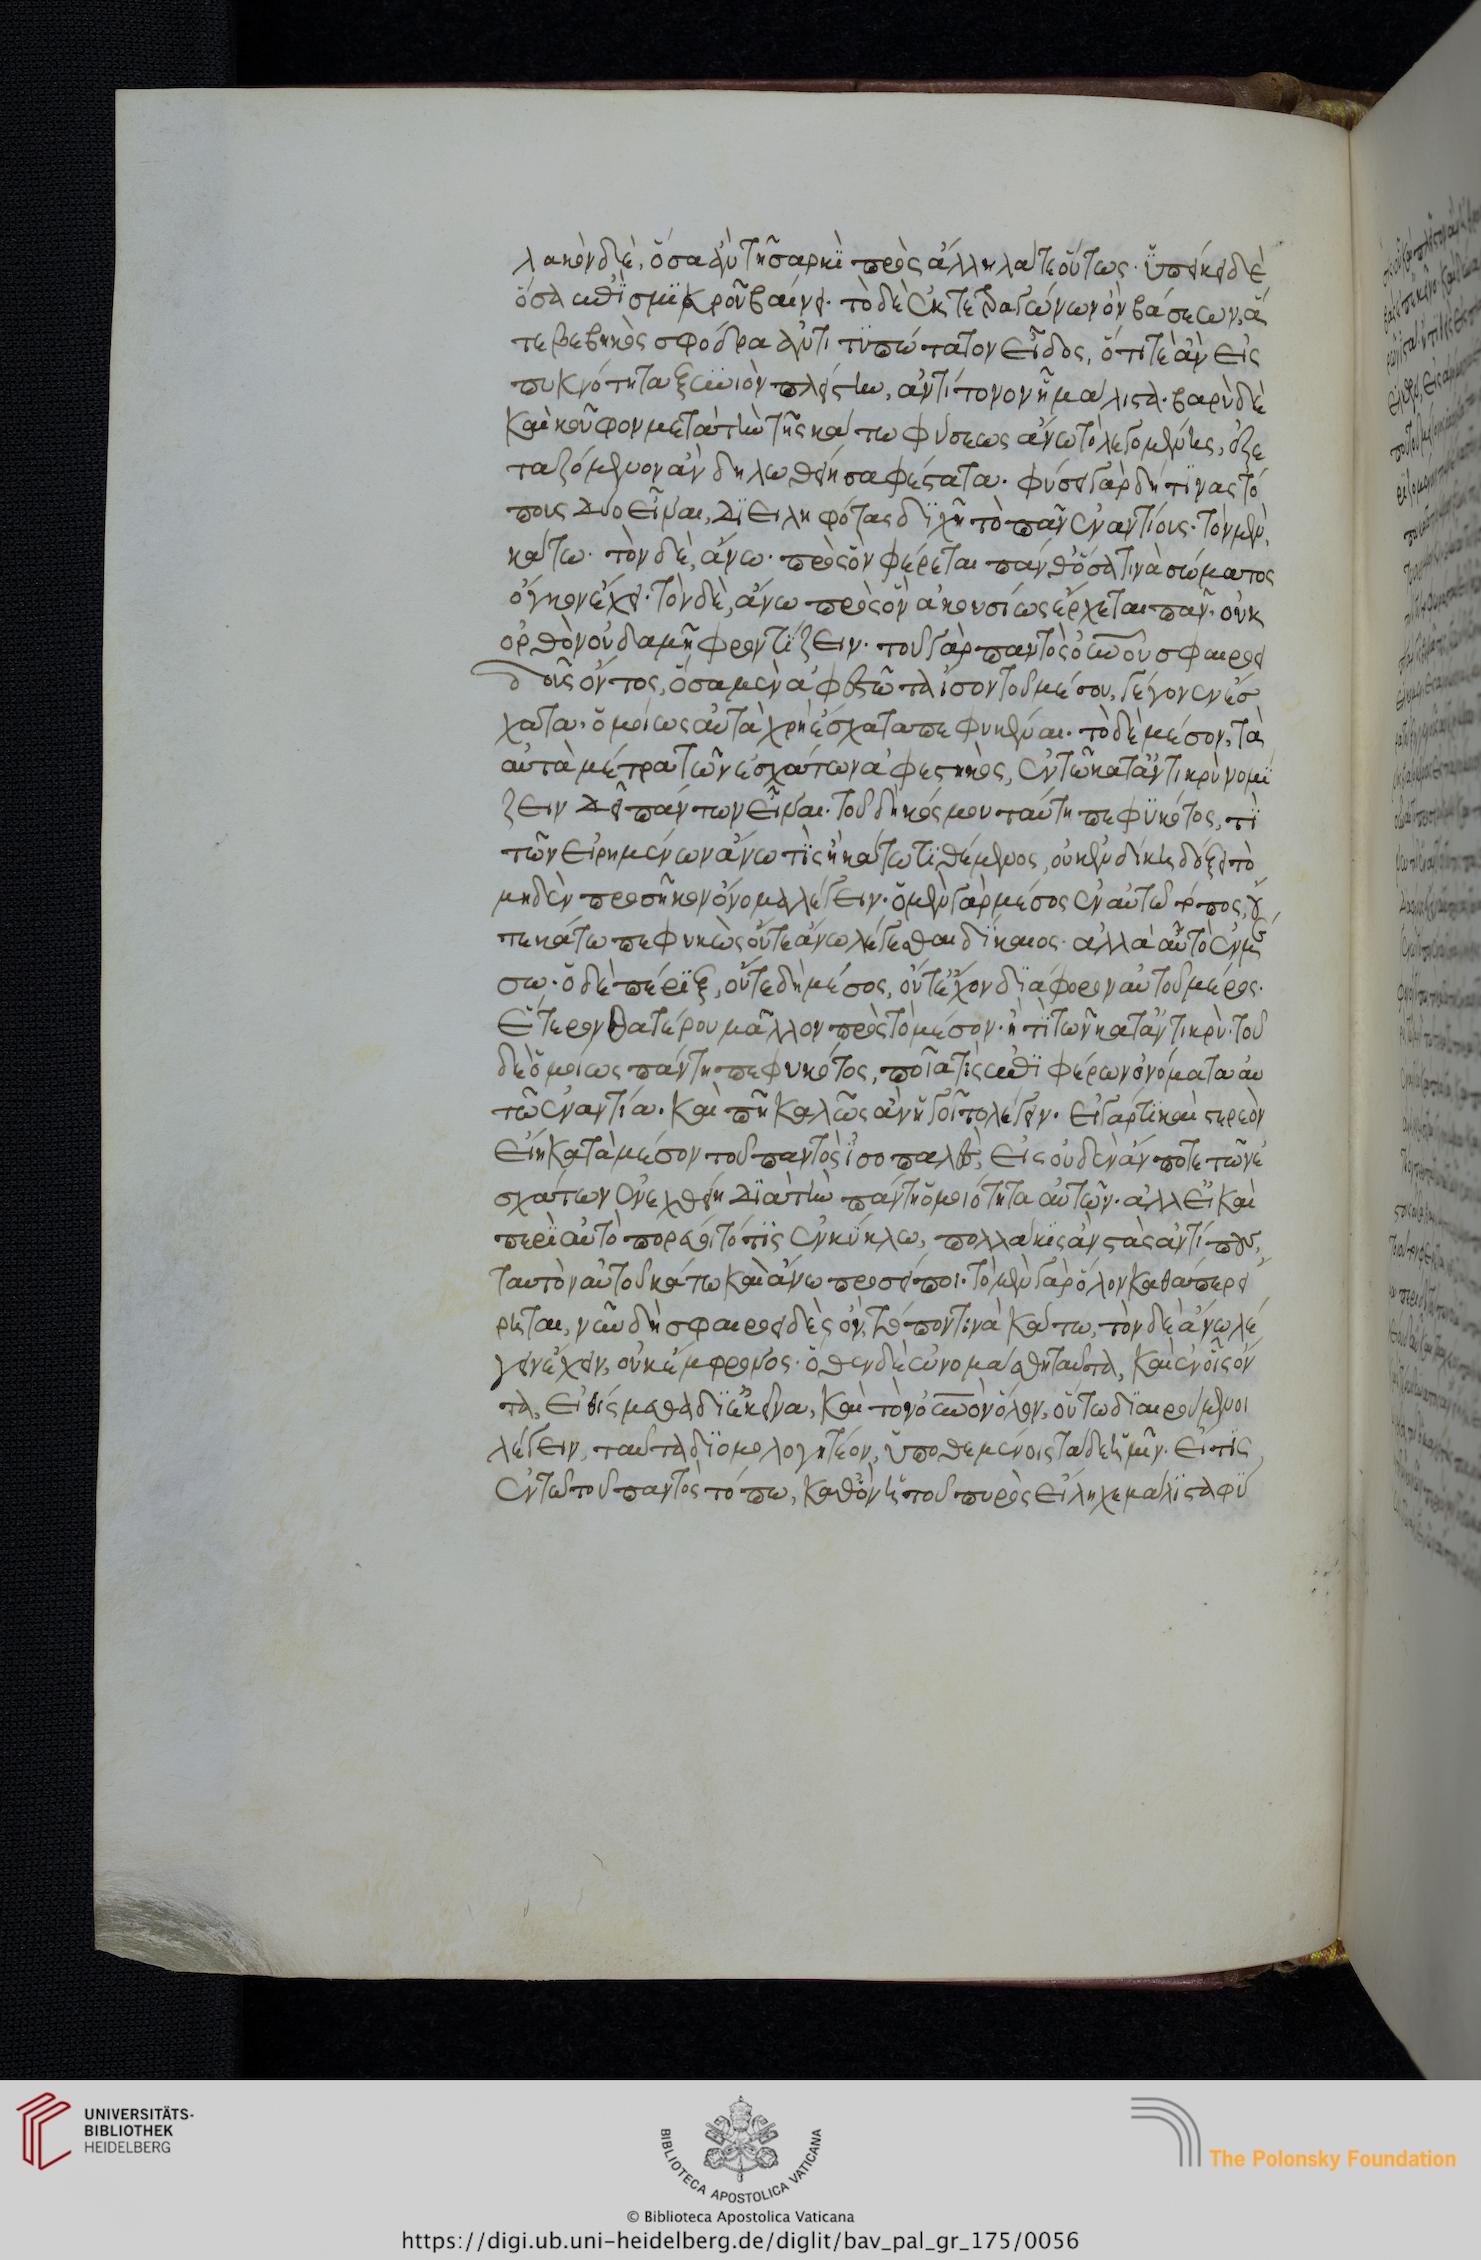 λακὸν δὲ, ὅσα ἂν τῆ σαρκὶ πρὸς ἄλληλά τε οὕτως. ὑπείκει δὲ
ὅσα ἐπὶ σμικροῦ βαίνει. τὸ δὲ ἐκ τετραγώνων ὂν βάσεων, ἅ
τε βεβηκὸς σφόδρα ἀντιτυπώτατον εἶδος, ὅτι τὲ ἂν εἰς
πυκνότητα ξυνιὸν πλείστην, ἀντίτονον ἦ μάλιστα. βαρὺ δὲ
καὶ κοῦφον μετὰ τὴν τῆς κάτω φύσεως ἄνω τὲ λεγομένης, ἐξε
ταζόμενον ἂν δηλωθείη σαφέστατα. φύσει γὰρ δή τινας τό
πους δύο εἶναι, διειληφότας διχῆ τὸ πᾶν ἐναντίους. τὸν μὲν,
κάτω. τὸν δὲ, ἄνω. πρὸς ὃν φέρεται πάνθ' ὅσα τινὰ σώματος
ὄγκον ἔχει. τὸν δὲ, ἄνω πρὸς ὃν ἀκουσίως ἔρχεται πᾶν. οὐκ
ὀρθὸν οὐδαμῆ φροντίζειν. τοῦ γὰρ παντὸς οὐρανοῦ σφαιροει
δοῦς ὄντος, ὅσα μὲν ἀφεστῶτα ἴσον τοῦ μέσου, γέγονεν ἔσ
χατα. ὁμοίως αὐτὰ χρὴ ἔσχατα πεφυκέναι. τὸ δὲ μέσον, τὰ
αὐτὰ μέτρα τῶν ἐσχάτων ἀφεστηκὸς, ἐν τῶ καταντικρὺ νομί
ζειν δεῖ πάντων εἶναι. τοῦ δὴ κόσμου ταύτη πεφυκότος, τί
τῶν εἰρημένων ἄνω τὶς ἢ κάτω τιθέμενος, οὐκ ἐν δίκη δόξει τὸ
μηδὲν προσῆκον ὄνομα λέγειν. ὁ μὲν γὰρ μέσος ἐν αὐτῶ τόπος, οὔ
τε κάτω πεφυκὼς οὔτε ἄνω λέγεσθαι δίκαιος. ἀλλὰ αὐτὸ ἐν μέ
σω. ὁ δὲ πέριξ, οὔτε δὴ μέσος, οὔτ' ἔχον διάφορον αὐτοῦ μέρος.
ἕτερον θατέρου μᾶλλον πρὸς τὸ μέσον. ἤ τι τῶν καταντικρύ. τοῦ
δὲ ὁμοίως πάντη πεφυκότος, ποῖά τις ἐπιφέρων ὀνόματα αὐ
τῶ ἐναντία. καὶ πῆ καλῶς ἂν ἡγοῖτο λέγειν. εἰ γάρ τι καὶ στερεὸν
εἴη κατὰ μέσον τοῦ παντὸς ἰσοπαλὲς, εἰς οὐδὲν ἄν ποτε τῶν ἐ
σχάτων ἐνεχθείη διὰ τὴν πάντη ὁμοιότητα αὐτῶν. ἀλλ' εἰ καὶ
περὶ αὐτὸ πορεύοιτό τις ἐν κύκλω, πολλάκις ἂν στὰς ἀντίπους,
ταυτὸν αὐτοῦ κάτω καὶ ἄνω προσείποι. τὸ μὲν γὰρ ὅλον καθάπερ εἴ
ρηται, νῦν δὴ σφαιροειδὲς ὂν, τόπον τινὰ κάτω, τὸν δὲ ἄνω λέ
γειν ἔχειν, οὐκ ἔμφρονος. ὅθεν δὲ ὠνομάσθη ταῦτα, καὶ ἐν οἷς ὄν
τα, εἰθίσμεθα δι' ἐκεῖνα, καὶ τὸν οὐρανὸν ὅλον, οὕτω διαιρούμενοι
λέγειν, ταῦτα διομολογητέον, ὑποθεμένοις τάδε ἡμῖν. εἴ τις
ἐν τῶ τοῦ παντὸς τόπω, καθ' ὃν ἡ τοῦ πυρὸς εἴληχε μάλιστα φύ
UNIVERSITÄTS-
BIBLIOTHEK
HEIDELBERG
BIBLIOTECA APOSTOLICA VATICANA
The Polonsky Foundation
© Biblioteca Apostolica Vaticana
https://digi.ub.uni-heidelberg.de/diglit/bav_pal_gr_175/0056